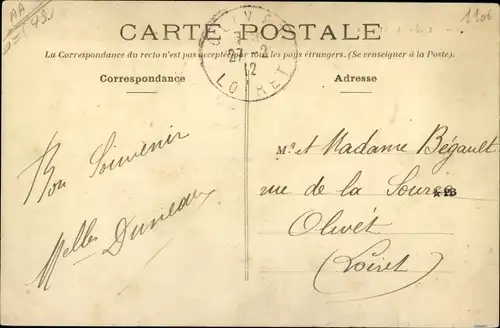 AA
1106
CARTE POSTALE
La Correspondance du recto n'est pas acceptée par tous les pays étrangers. (Se renseigner à la Poste).
Correspondance
Adresse
OLIVET
27 - 2
12
LOIRET
Bon Souvenir
Melles
Mr et Madame Bégault
rue de la Source
Olivet
(Loiret)